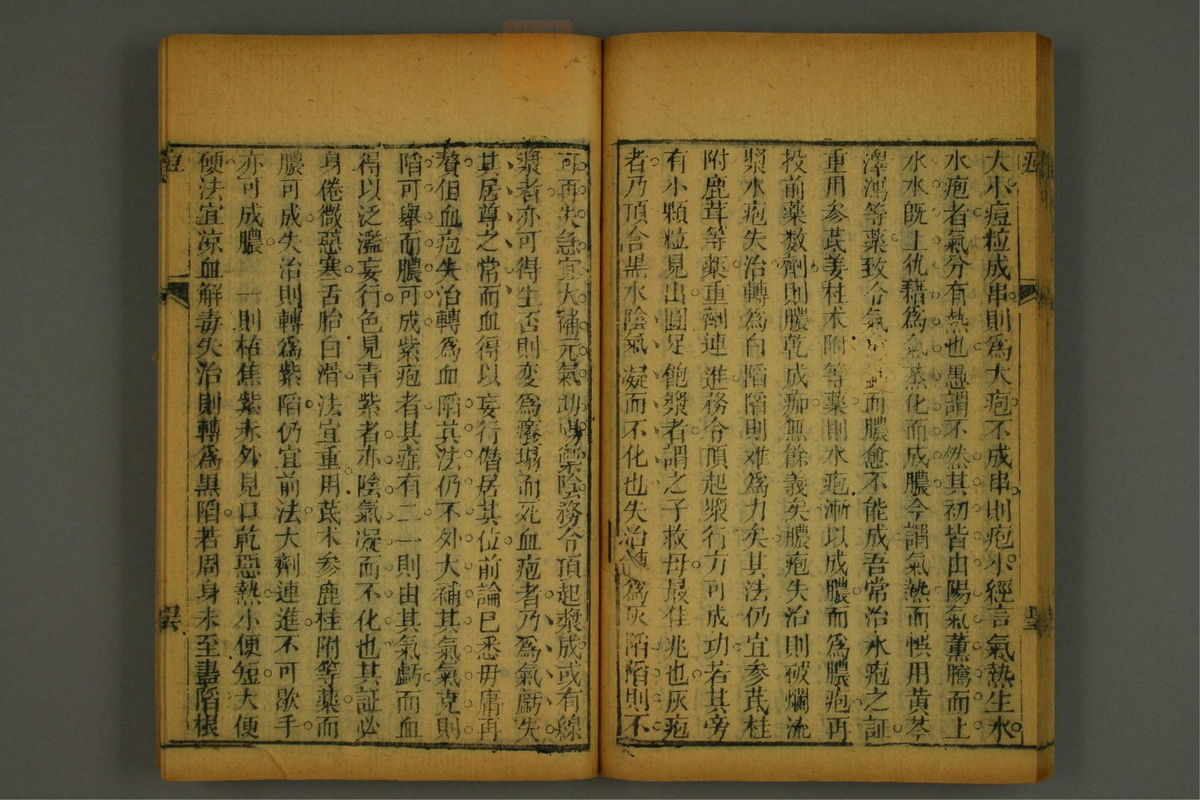 大小痘粒成串則爲大疱不成串則疱小經言氣熱生水
水疱者氣分有熱也愚謂不然其初皆由陽氣薰騰而上
水水既上犹藉爲氣蒸化而成膿今謂氣熱而悞用黃芩
澤瀉等藥致令氣而膿愈不能成吾常治水疱之証
重用参茋姜桂术附等藥則水疱漸以成膿而爲膿疱再
投前藥数劑則膿乾成痂無餘義矣膿疱失治則破爛流
漿水疱失治轉爲白陷陷則难爲力矣其法仍宜参茋桂
附鹿茸等藥重劑連進務令頂起漿行方可成功若其旁
有小顆粒見出圓足飽漿者謂之子救母最佳兆也灰疱
者乃頂含黑水陰氣凝而不化也失治轉爲灰陷陷則不
可再失急宜大補元氣助陽樂陰務令頂起漿成或有線
漿者亦可得生否則変爲癢塌而死血疱者乃爲氣虧失
其居尊之常而血得以妄行僭居其位前論已悉毋庸再
贅但血疱失治轉爲血陷其法仍不外大補其氣氣克則
陷可舉而膿可成紫疱者其症有二一則由其氣虧而血
得以泛濫妄行色見青紫者亦陰氣凝而不化也其証必
身倦微惡寒舌胎白滑法宜重用茋术参鹿桂附等藥而
膿可成失治則轉爲紫陷仍宜前法大劑連進不可歇手
亦可成膿 一則枯焦紫赤外見口乾惡熱小便短大便
硬法宜涼血解毒失治則轉爲黑陷若周身未至盡陷根